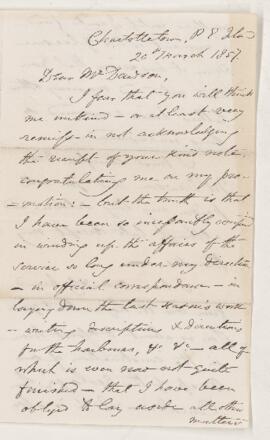 Charlottetown, P E Isld
20th March 1857.
Dear Mr Dawson,
I fear that you will think
me unkind - or at least very
remiss - in not acknowledging
the receipt of your kind note,
congratulating me on my pro-
-motion: - but the truth is that
I have been so incessantly occupied
in winding up the affairs of the
service so long under my direction
- in official correspondence - in
laying down the last season's work
- writing descriptions & directions
for the harbours, &c &c - all of
which is even now not quite
finished - that I have been
obliged to lay aside all other
matters